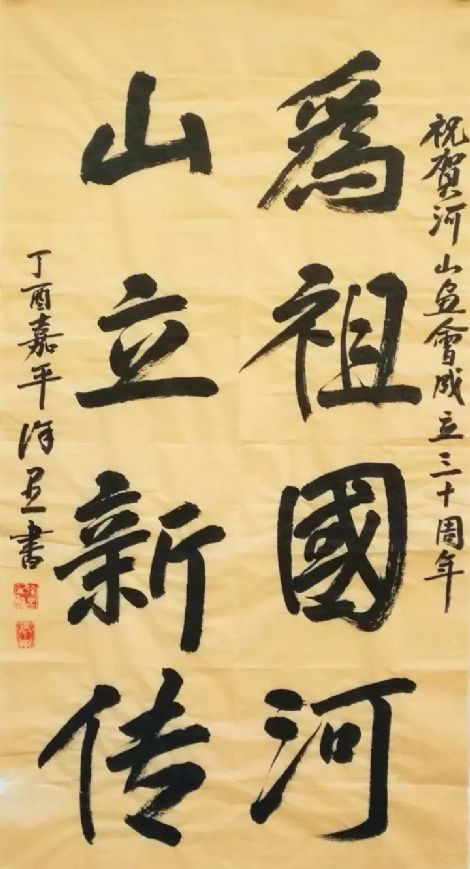 祝贺河山画會成立三十周年
爲祖國河
山立新传
丁酉嘉平
書